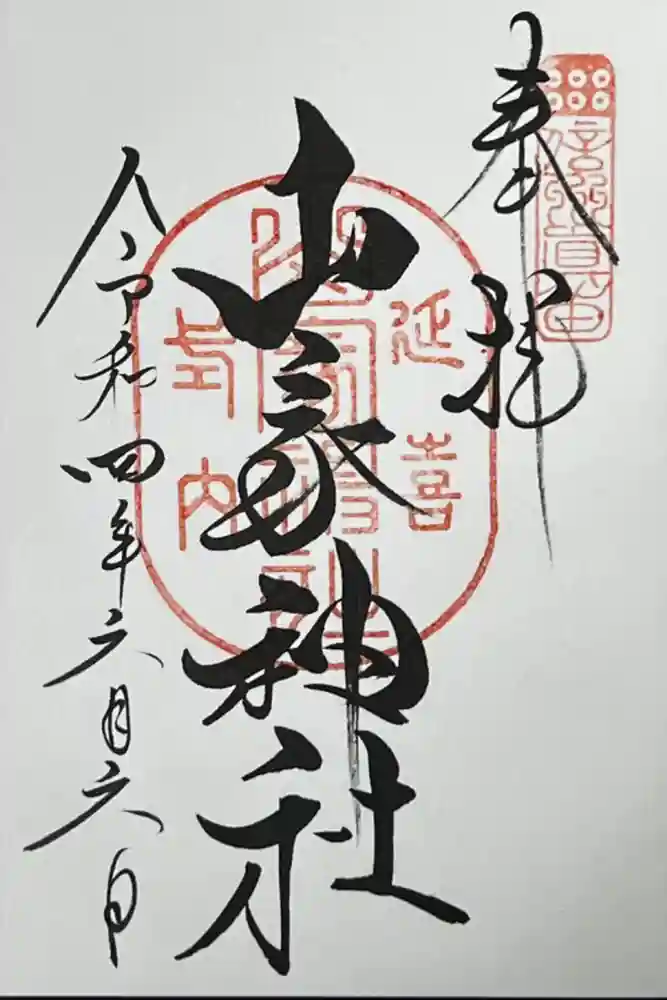 奉拝
信州真田
山家神社
延喜
式内
山家神社
令和四年六月六日